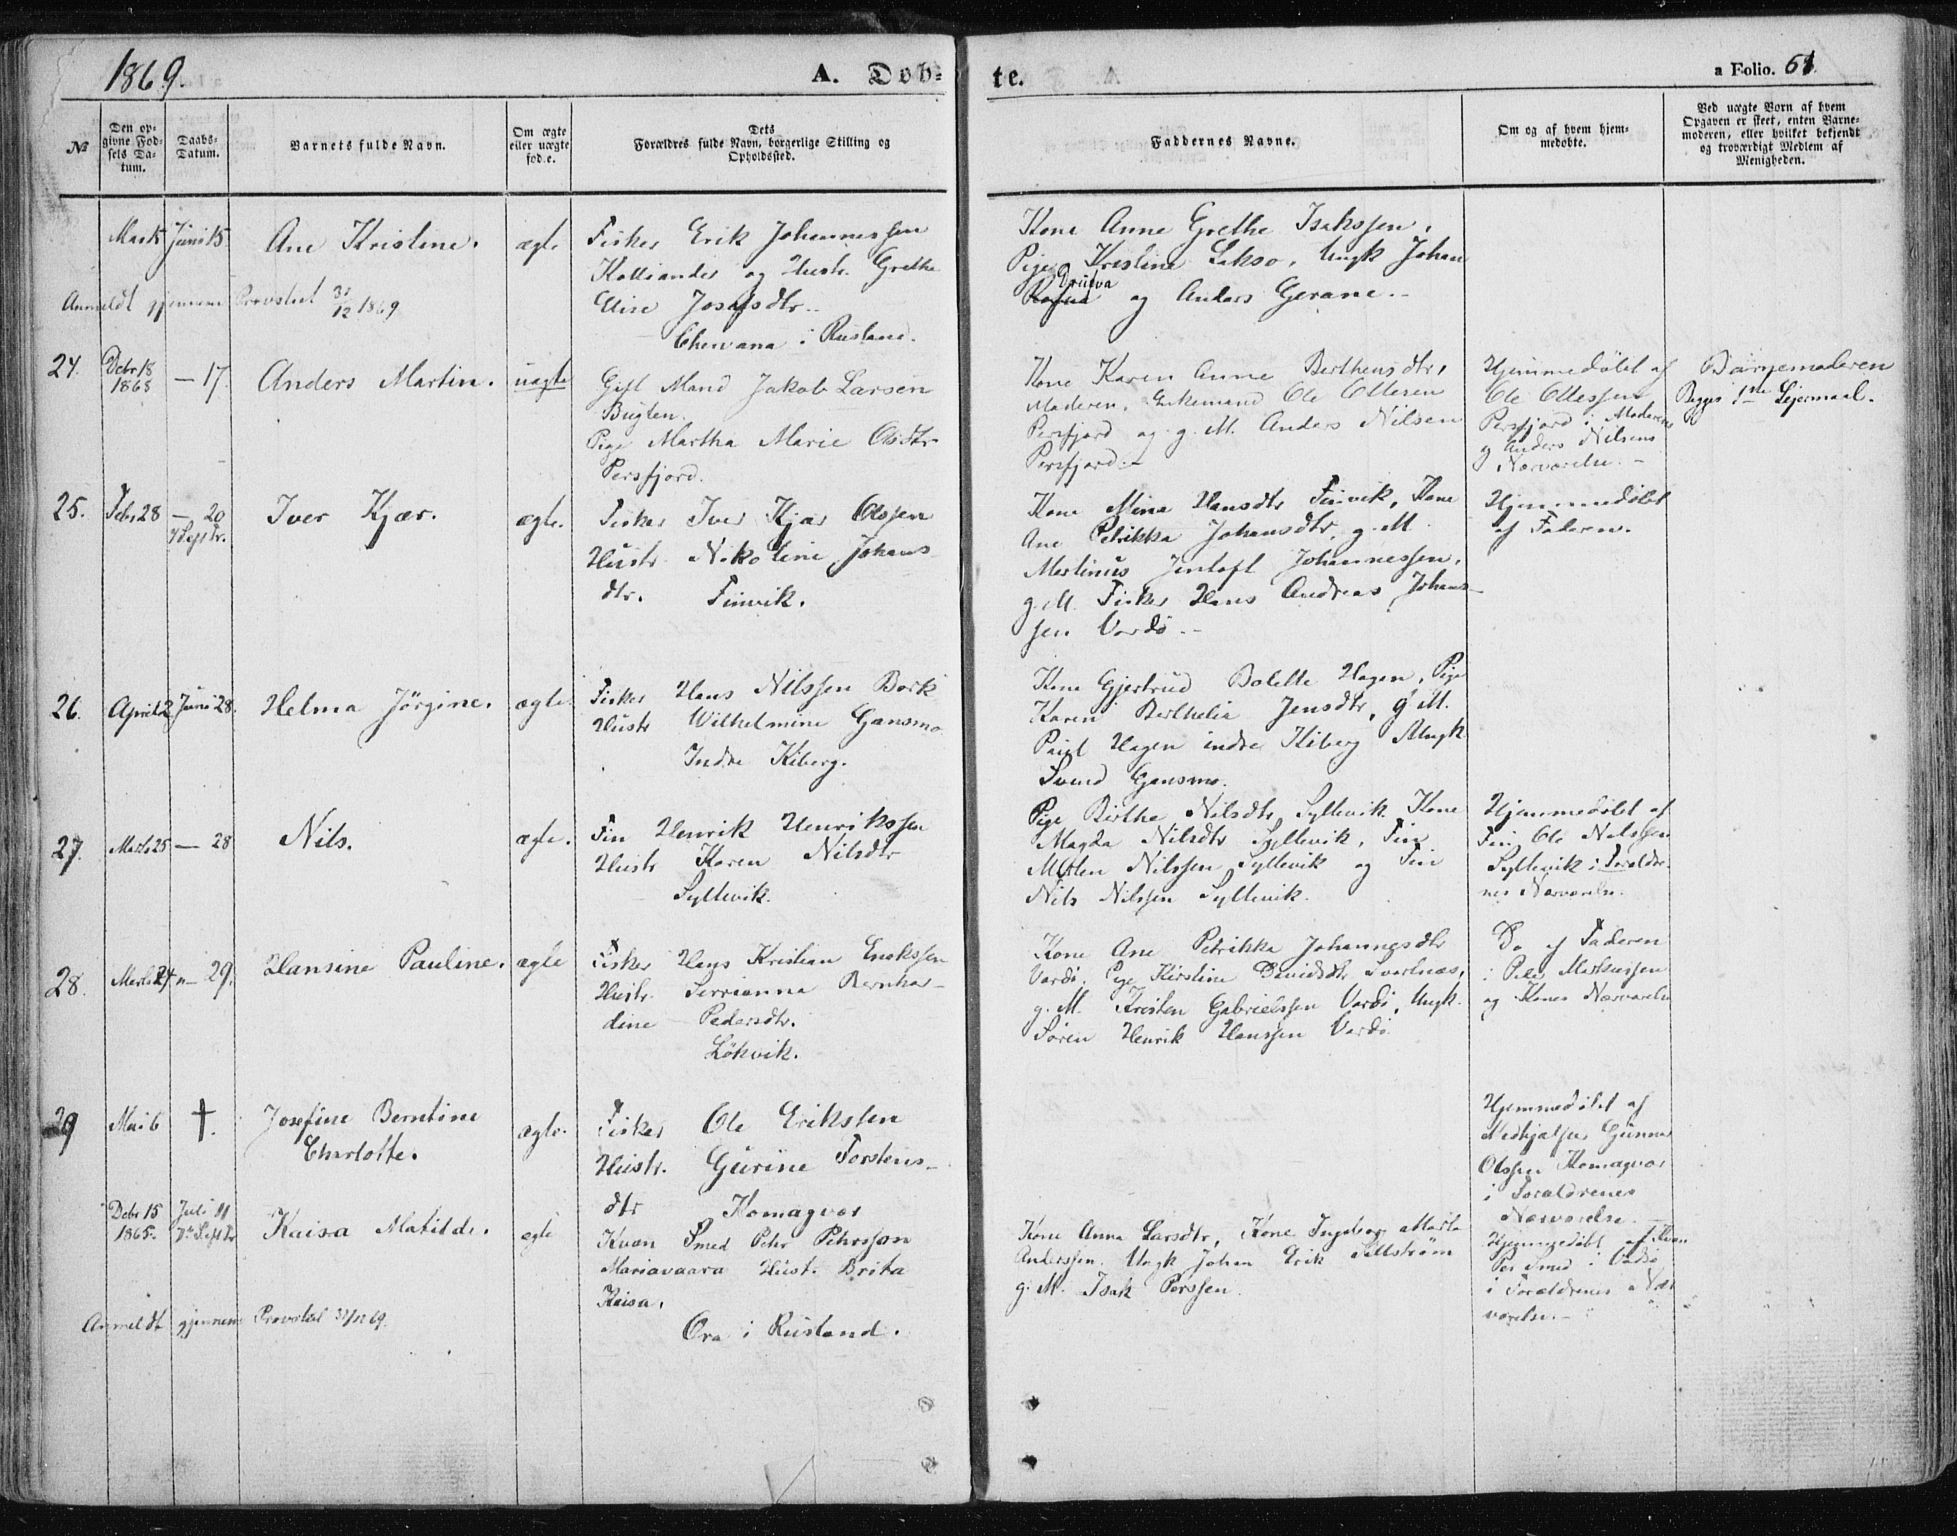 1869.
A. Døb-
te.
a Folio. 61.
№
Den op-
givne Fød-
sels Da-
tum.
Daabs-
Datum.
Barnets fulde Navn.
Om ægte
eller uægte
fød.e.
Dets
Forældres fulde Navn, borgerlige Stilling og
Opholdssted.
Faddernes Navne.
Om og af hvem hjem-
medøbte.
Ved uægte Børn af hvem
Opgaven er skeet, enten Barne-
moderen, eller hvilket bekjendt
og troværdigt Medlem af
Menigheden.
Mai 15 Juni 15 Ane Kristine. ægte
Fisker Erik Johannessen
og Hustr. Grethe
Elise Josefsdtr.
i Rusland.
Kone Anne Grethe Isakssen,
Pige Kristine Lakso, Ungk Johan
og Anders Gerane.
Anmeldt gjennem Provstiet 31/12 1869
24. Debr 18 1868 — 17. Anders Martin. uægte
Gift Mand Jakob Larsen
Bugten.
Pige Martha Marie Olsdtr
Persfjord.
Kone Karen Anne Berthensdtr,
Moderen, Enkemand Ole Ollesen
Persfjord og g. M. Anders Nilsen
Persfjord.
Hjemmedøbt af
Ole Ollessen
Persfjord i Moderens
og Anders Nilsens
Nærværelse.
Barnemoderen
Begges 1ste Lejermaal.
25. Febr 28 — 20 Iver Kjær. ægte.
Fisker Iver Kjær Olssen
Hustr Nikoline Johans
dtr. Finvik.
Kone Mina Hansdtr Finvik, Kone
Ane Petrikka Johansdtr, g. M.
Martinus Jentoft Johannessen,
g. M. Fisker Hans Andreas Johans-
sen Vardö.
Hjemmedøbt
af Faderen.
26. April 2 Juni 28. Helma Jörgine. ægte.
Fisker Hans Nilssen Bork
Hustr Wilhelmine Gansmo
Indre Kiberg.
Kone Gjertrud Bolette Hagen, Pige
Karen Berthelia Jensdtr, g. M.
Paul Hagen indre Kiberg Ungk
Svend Gansmo.
27. Marts 25 — 28 Nils. ægte.
Fin Henrik Henrikssen
Hustr Karen Nilsdtr
Syltevik.
Pige Birthe Nilsdtr Syltevik. Kone
Magda Nilsdtr Syltevik, Fin
Morten Nilssen Syltevik og Fin
Nils Nilssen Syltevik.
Hjemmedøbt af
Fin Ole Nilssen
Syltevik i Forældre-
nes Nærværelse.
28. Marts 24 — 29. Hansine Pauline. ægte
Fisker Hans Kristian Enokssen
Hustr. Serrianna Bernhar-
dine Pedersdtr.
Lökvik.
Kone Ane Petrikka Johannesdtr
Vardö. Pige Kirstine Davidsdtr Svartnæs,
g. M. Kristen Gabrielssen Vardö, Ungk.
Sören Henrik Hanssen Vardö
Do af Faderen
i Peder Markussen
og Kones Nærværelse
29 Mai 6 †. Josefine Berntine
Charlotte. ægte.
Fisker Ole Erikssen
Hustr. Gurine Torstens-
dtr Komagvær
Hjemmedøbt af
Medhjælper Gunner
Olssen Komagvær
i Forældrenes
Nærværelse.
Debr 15 1865. Juli 11 Kaisa Matilde. ægte
Kvæn Smed Petr Pehrsson
Mariavaara Hust. Brita
Kaisa.
Ora i Rusland.
Kone Anna Larsdtr, Kone Ingeborg Marta
Anderssen. Ungk Johan Erik Sallström
g. M. Isak Persson.
Hjemmedøbt af Kvæn
Per Smed i Vadsö
i Forældrenes Nær-
værelse.
Anmeldt gjennem Provstiet 31/12 69.